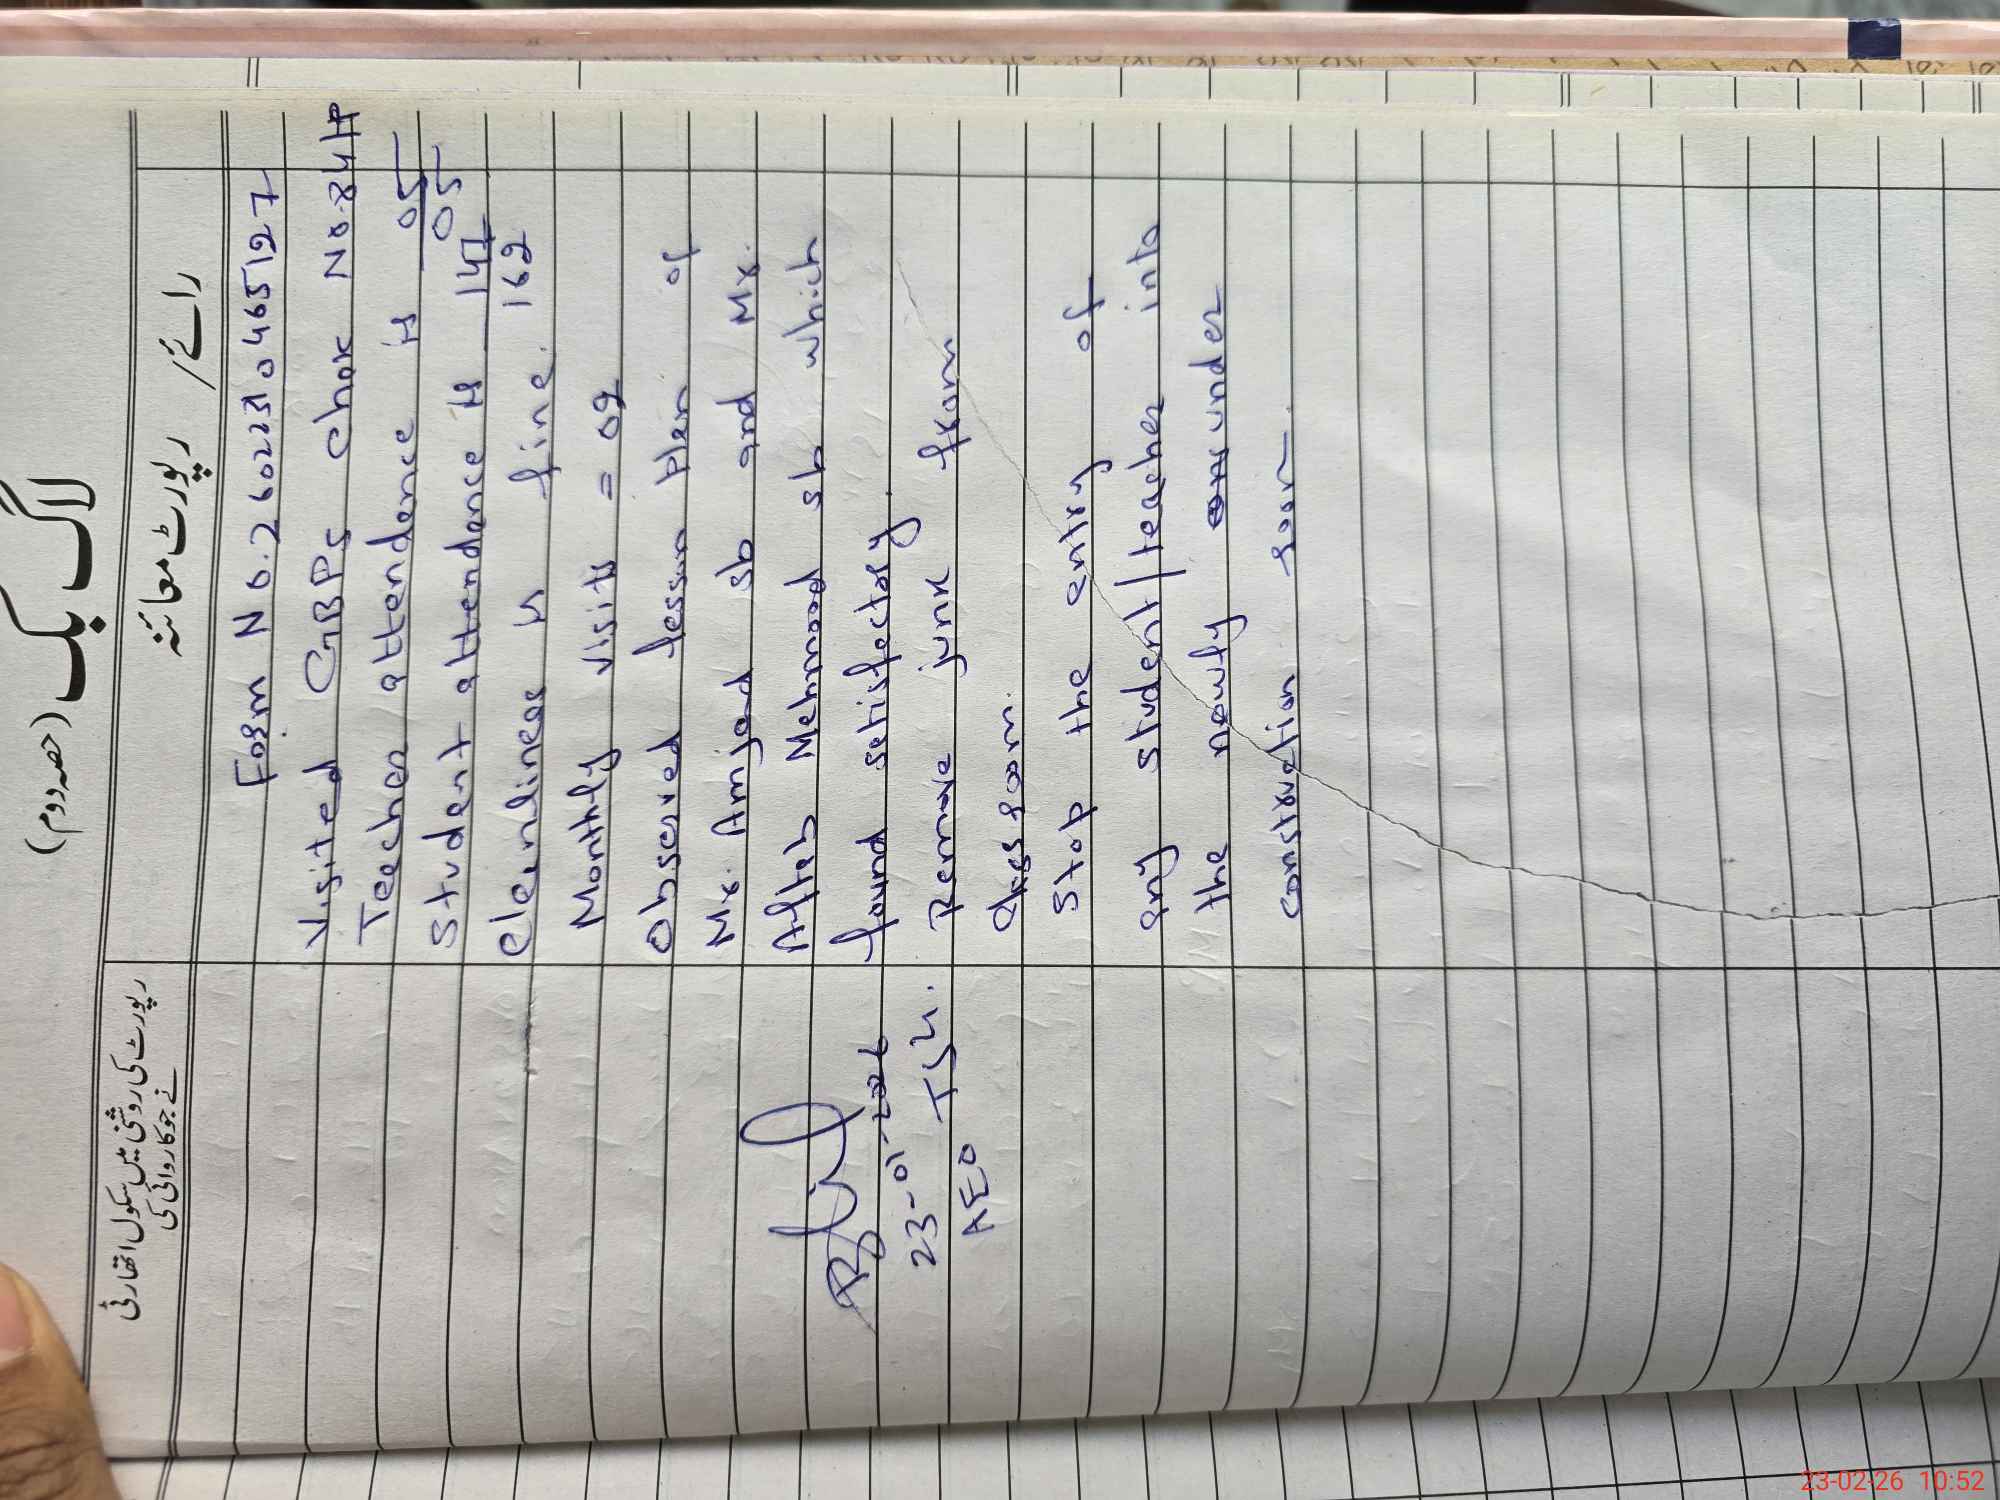 لاگ بک (حصہ دوم)
رپورٹ معائنہ / رائے
رپورٹ کی روشنی میں سکول اتھارٹی
نے جو کاروائی کی
Form No. 26022310465127
Visited GBPS chak No. 84/P
Teecher attendence is 05/05
Student attendence is 147/162
Cleanliness is fine.
Monthly visits = 02
Observed lesson plan of
Mr. Amjad sb and Mr.
Aftab Mehmood sb which
found setisfectory.
Remove junk from
classroom.
Stop the entry of
any student/teacher into
the newly under
construction room.
23-01-2026
AEO
23-02-26 10:52